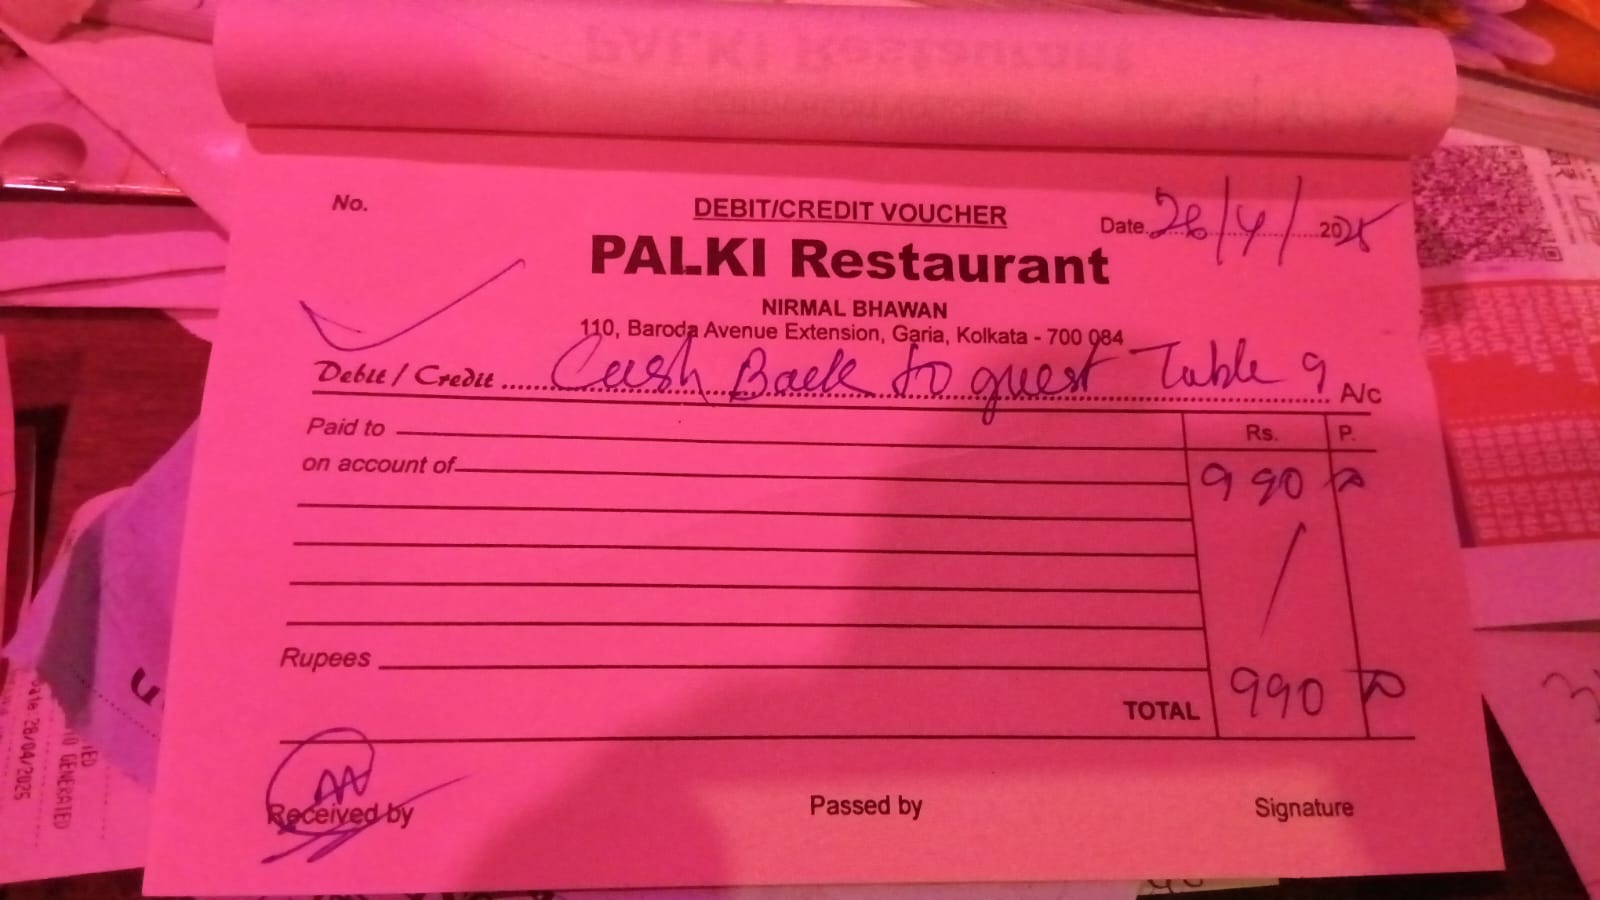 No.
DEBIT/CREDIT VOUCHER
Date 28/4/2025
PALKI Restaurant
NIRMAL BHAWAN
110, Baroda Avenue Extension, Garia, Kolkata - 700 084
Debit / Credit Cash Back to guest Table 9 A/c
Paid to
Rs. P.
on account of
990
Rupees
TOTAL 990
Received by
Passed by
Signature
Date 28/04/2025
GENERATED